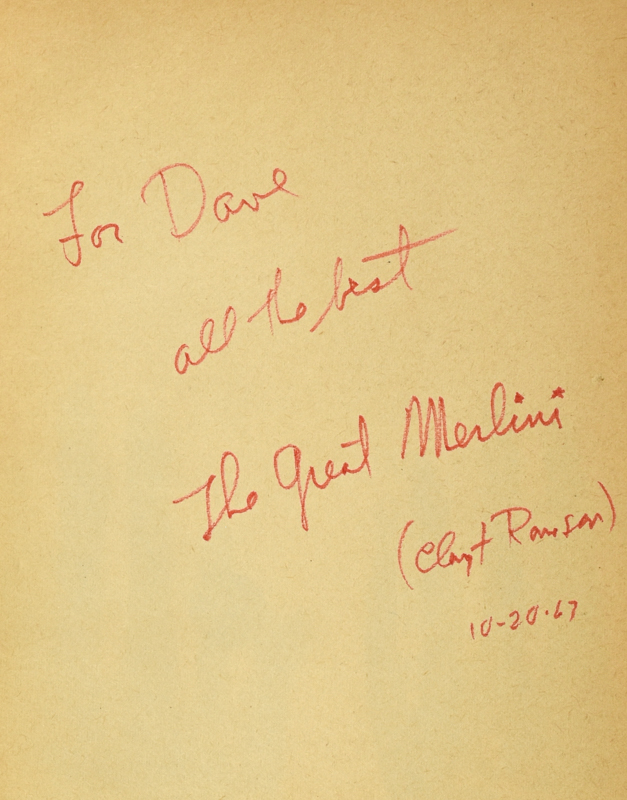 For Dave
all the best
The Great Merlini
(Clayt Rawson)
10-20-67